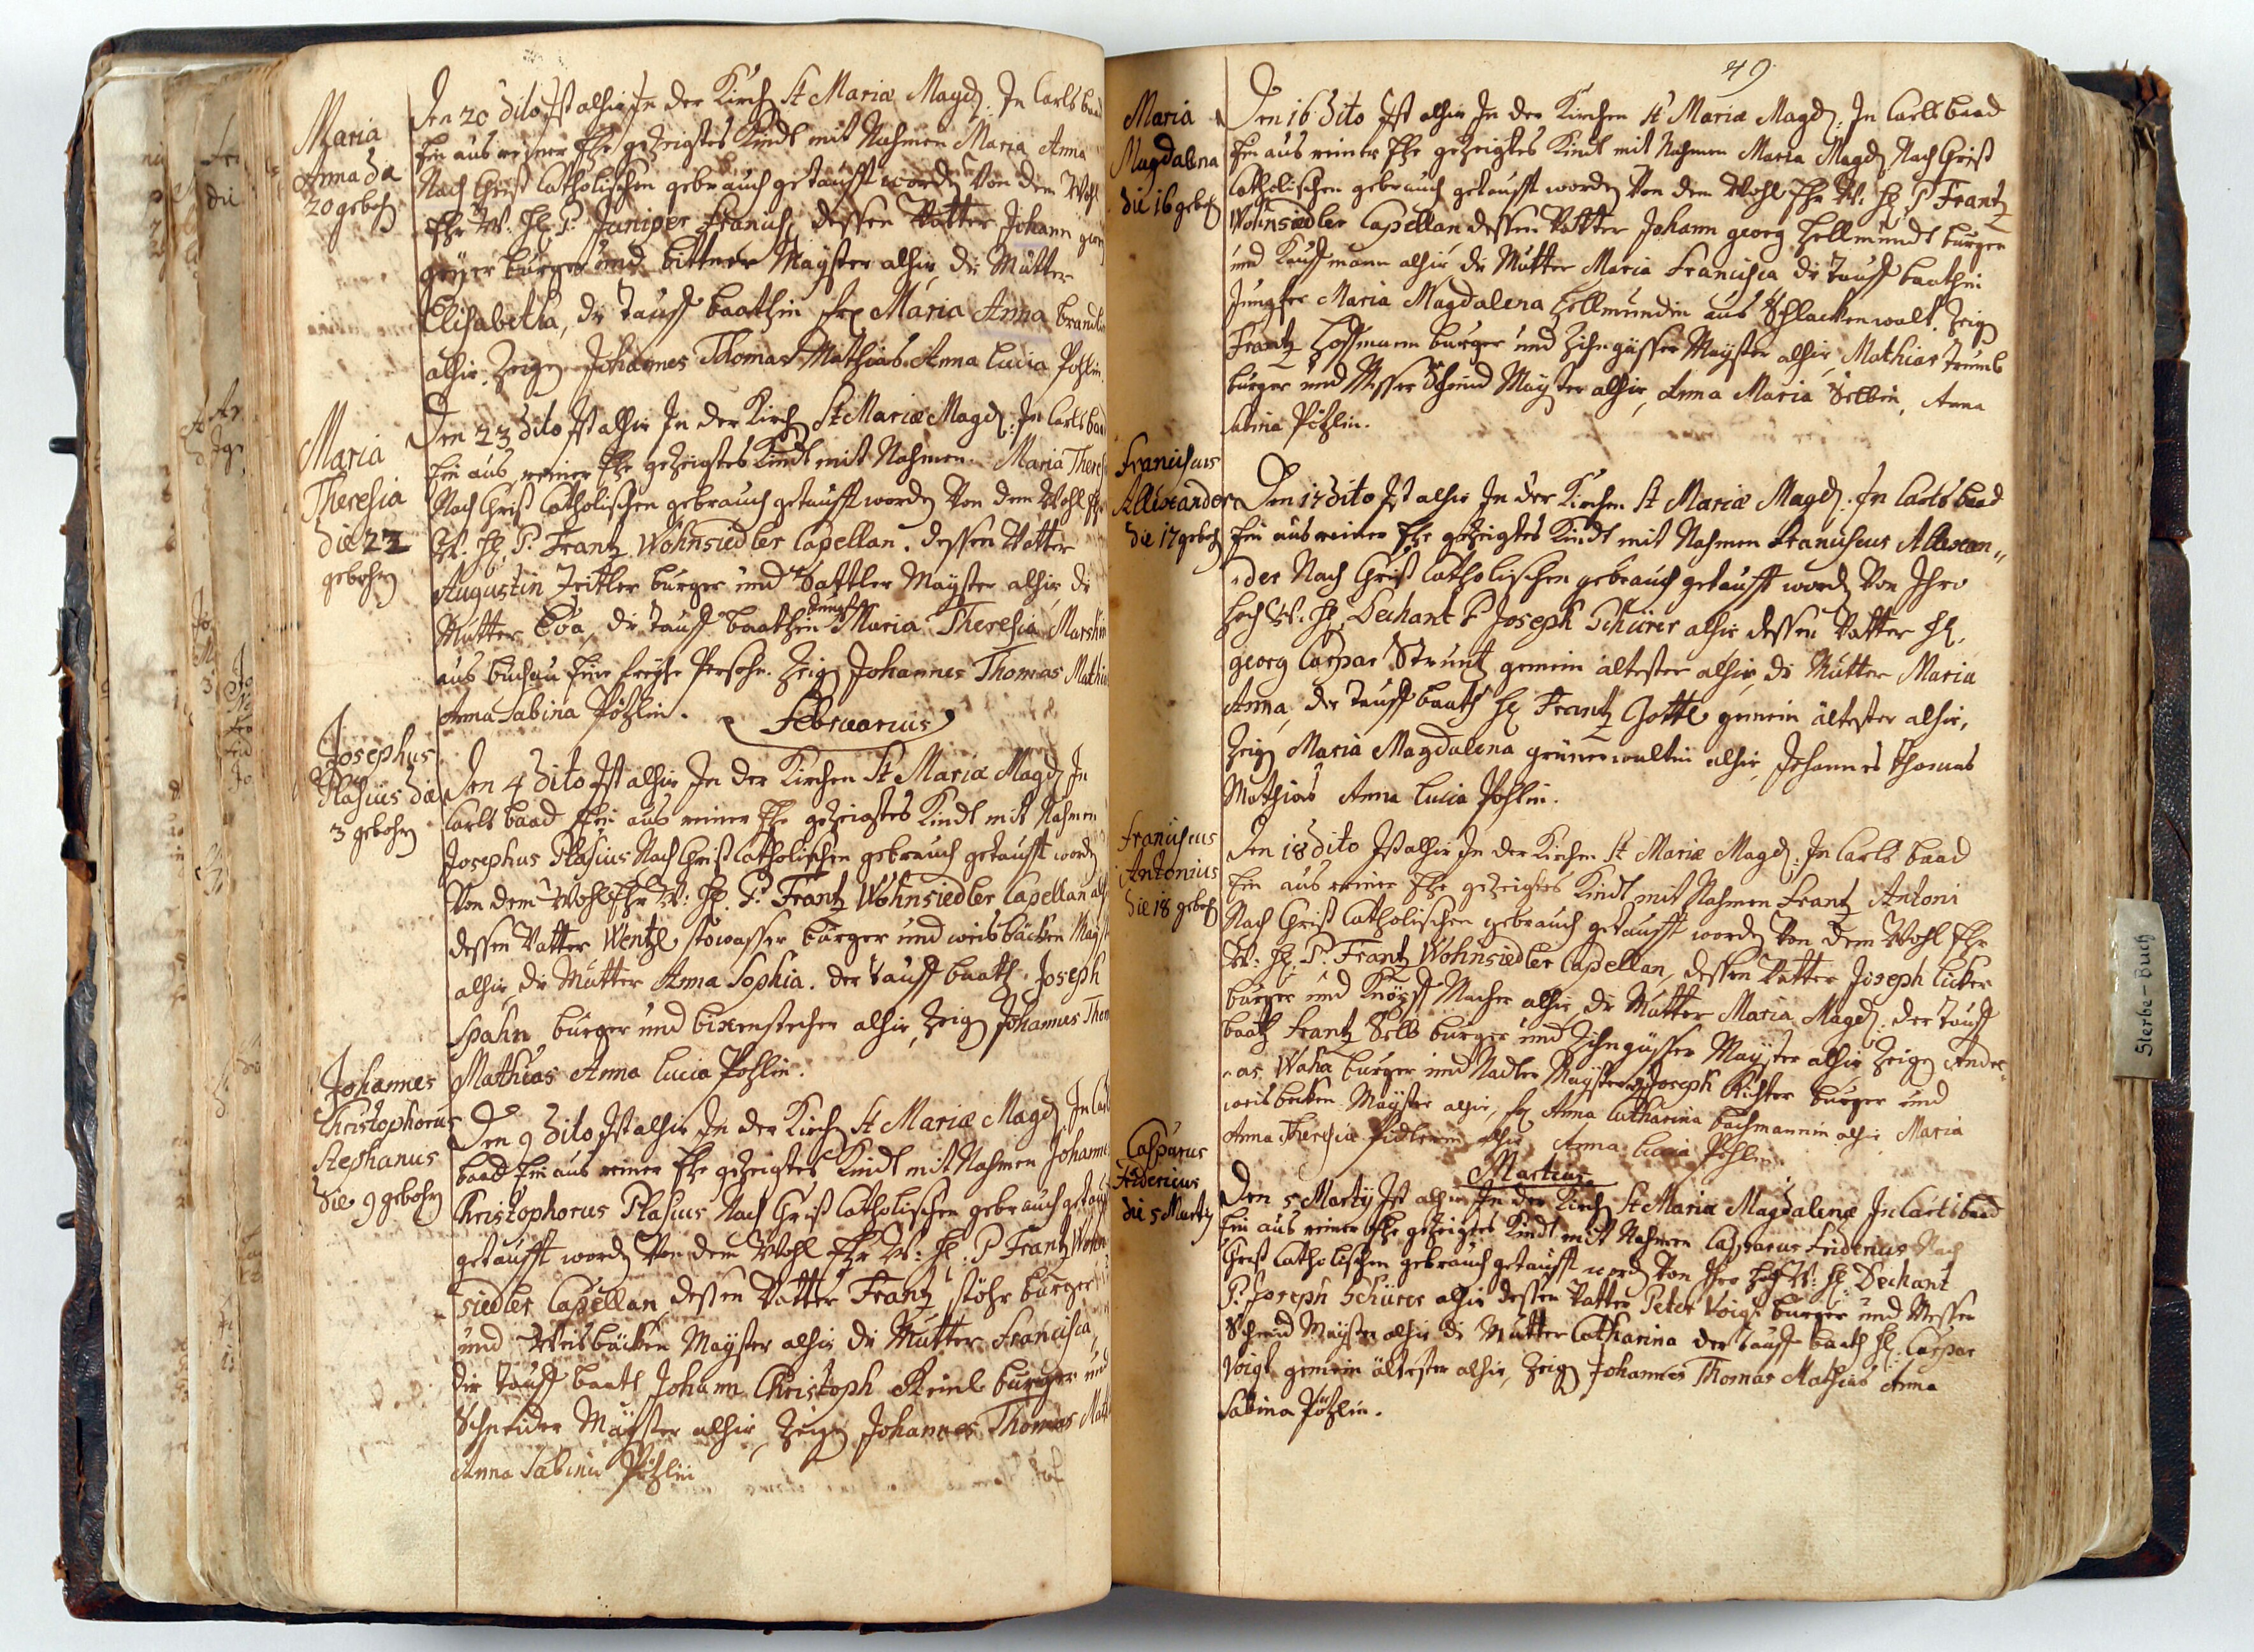 Maria
Anna die
20 gebohrn
Den 20 dito Ist alhir In der Kirch St Mariæ Magd: In Carlsbaad
Ein aus reiner Ehe gezeigtes Kindt mit Nahmen Maria Anna
Nach Christ Catholischen gebrauch getaufft worden Von dem Wohl
Ehr W: H: P. Juniper dessen Vatter Johann georg
geyer burger und bittner Mayster alhir die Mutter
Elisabetha, die Tauff baathin Maria Anna
alhir, Zeigen Johannes Thomas Mathias Anna Lucia Pohlin
Maria
Theresia
die 22
gebohrn
Den 23 dito Ist alhir In der Kirch St Mariæ Magd: In Carlsbaad
Ein aus reiner Ehe gezeigtes Kindt mit Nahmen Maria Theresia
Nach Christ Catholischen gebrauch getaufft worden Von dem Wohl Ehr
W: H: P. Frantz Wohnsiedler Capellan. dessen Vatter
Augustin Zeitler burger und Sattler Mayster alhir die
Mutter Eva, die Tauff baathin Jungfr Maria Theresia
aus buchau Eine freyhe Persohn. Zeigen Johannes Thomas Mathias
Anna Sabina Pözlin.
Februarius
Josephus
Plasius die
3 gebohrn
Den 4 dito Ist alhir In der Kirchen St Mariæ Magd: In
Carls baad Ein aus reiner Ehe gezeigtes Kindt mit Nahmen
Josephus Plasius Nach Christ Catholischen gebrauch getaufft worden
Von dem Wohl Ehr W: H: P: Frantz Wohnsiedler Capellan
dessen Vatter Wentzl stowasser burger und weisbäcken Mayster
alhir, die Mutter Anna Sophia. der Tauff baath Joseph
Spahn burger und bixenstecher alhir, Zeigen Johannes Thomas
Mathias Anna Lucia Pohlin.
Johannes
Christophorus
Stephanus
die 9 gebohrn
Den 9 dito Ist alhir In der Kirch St Mariæ Magd: In Carls
baad Ein aus reiner Ehe gezeigtes Kindt mit Nahmen Johannes
Christophorus Plasius Nach Christ Catholischen gebrauch
getaufft worden Von dem Wohl Ehr W: H: P Frantz Wohn
siedler Capellan dessen Vatter Frantz stöhr burger
und Weisbäcken Mayster alhir die Mutter Francisca
die Tauff baath Johann Christoph Keinl burger und
Schneider Mayster alhir, Zeigen Johannes Thomas Math
Anna Sabina Pözlin
49
Maria
Magdalena
die 16 gebohrn
Den 16 dito Ist alhir In der Kirchen St Mariæ Magd: In Carlsbaad
Ein aus reiner Ehe gezeigtes Kindt mit Nahmen Maria Magd: Nach Christ
Catholischen gebrauch getaufft worden Von dem Wohl Ehr W: H: P Frantz
Wohnsiedler Capellan dessen Vatter Johann georg Hellmundt burger
und Kauffmann alhir die Mutter Maria Francisca die Tauff baathin
Jungfer Maria Magdalena Hellmundin aus Schlackenwalt. Zeigen
Frantz Hoffmann burger und Zihngüsser Mayster alhir, Mathias
burger und Messer Schmid Mayster alhir, Anna Maria Selbin, Anna
Sabina Pözlin.
Franciscus
Allexander
die 17 gebohrn
Den 17 dito Ist alhir In der Kirchen St Mariæ Magd: In Carlsbaad
Ein aus reiner Ehe gezeigtes Kindt mit Nahmen Franciscus Allexan„
„der Nach Christ Catholischen gebrauch getaufft worden Von Ihro
Hoch W: H: Dechant P Joseph Schürer alhir dessen Vatter H:
georg Caspar Strunz gemein ältester alhir, die Mutter Maria
Anna, der Tauff baath H: Frantz Gottl gemein ältester alhir,
Zeigen Maria Magdalena grünerwaltin alhir, Johannes Thomas
Mathias Anna Lucia Pohlin.
Franciscus
Antonius
die 18 gebohrn
Den 18 dito Ist alhir In der Kirchen St Mariæ Magd: In Carls baad
Ein aus reiner Ehe gezeigtes Kindt mit Nahmen Frantz Antoni
Nach Christ Catholischen gebrauch getaufft worden Von dem Wohl Ehr
W: H: P: Frantz Wohnsiedler Capellan, dessen Vatter Joseph licker
burger und Knöpff Macher alhir, die Mutter Maria Magd: der Tauff
baath Frantz Selb burger und Zihngüsser Mayster alhir, Zeigen Andre„
„as Waha burger und Nadler Mayster Joseph Richter burger und
weisbecken Mayster alhir, Anna Catharina bachmannin alhir Maria
Anna Theresia alhir Anna Lucia Pohlin
Martius
Casparus
Fridericus
die 5 Martij
Den 5 Martij Ist alhir In der Kirch St Mariæ Magdalenæ In Carlsbaad
Ein aus reiner Ehe gezeigtes Kindt mit Nahmen Casparus Fridericus Nach
Christ Catholischen gebrauch getaufft worden Von Ihro Hoch W: H: Dechant
P: Joseph Schürer alhir dessen Vatter Peter Voigt burger und Messer
Schmid Mayster alhir die Mutter Catharina der Tauff baath H: Caspar
Voigt gemein ältester alhir, Zeigen Johannes Thomas Mathias Anna
Sabina Pözlin.
Sterbe-Buch